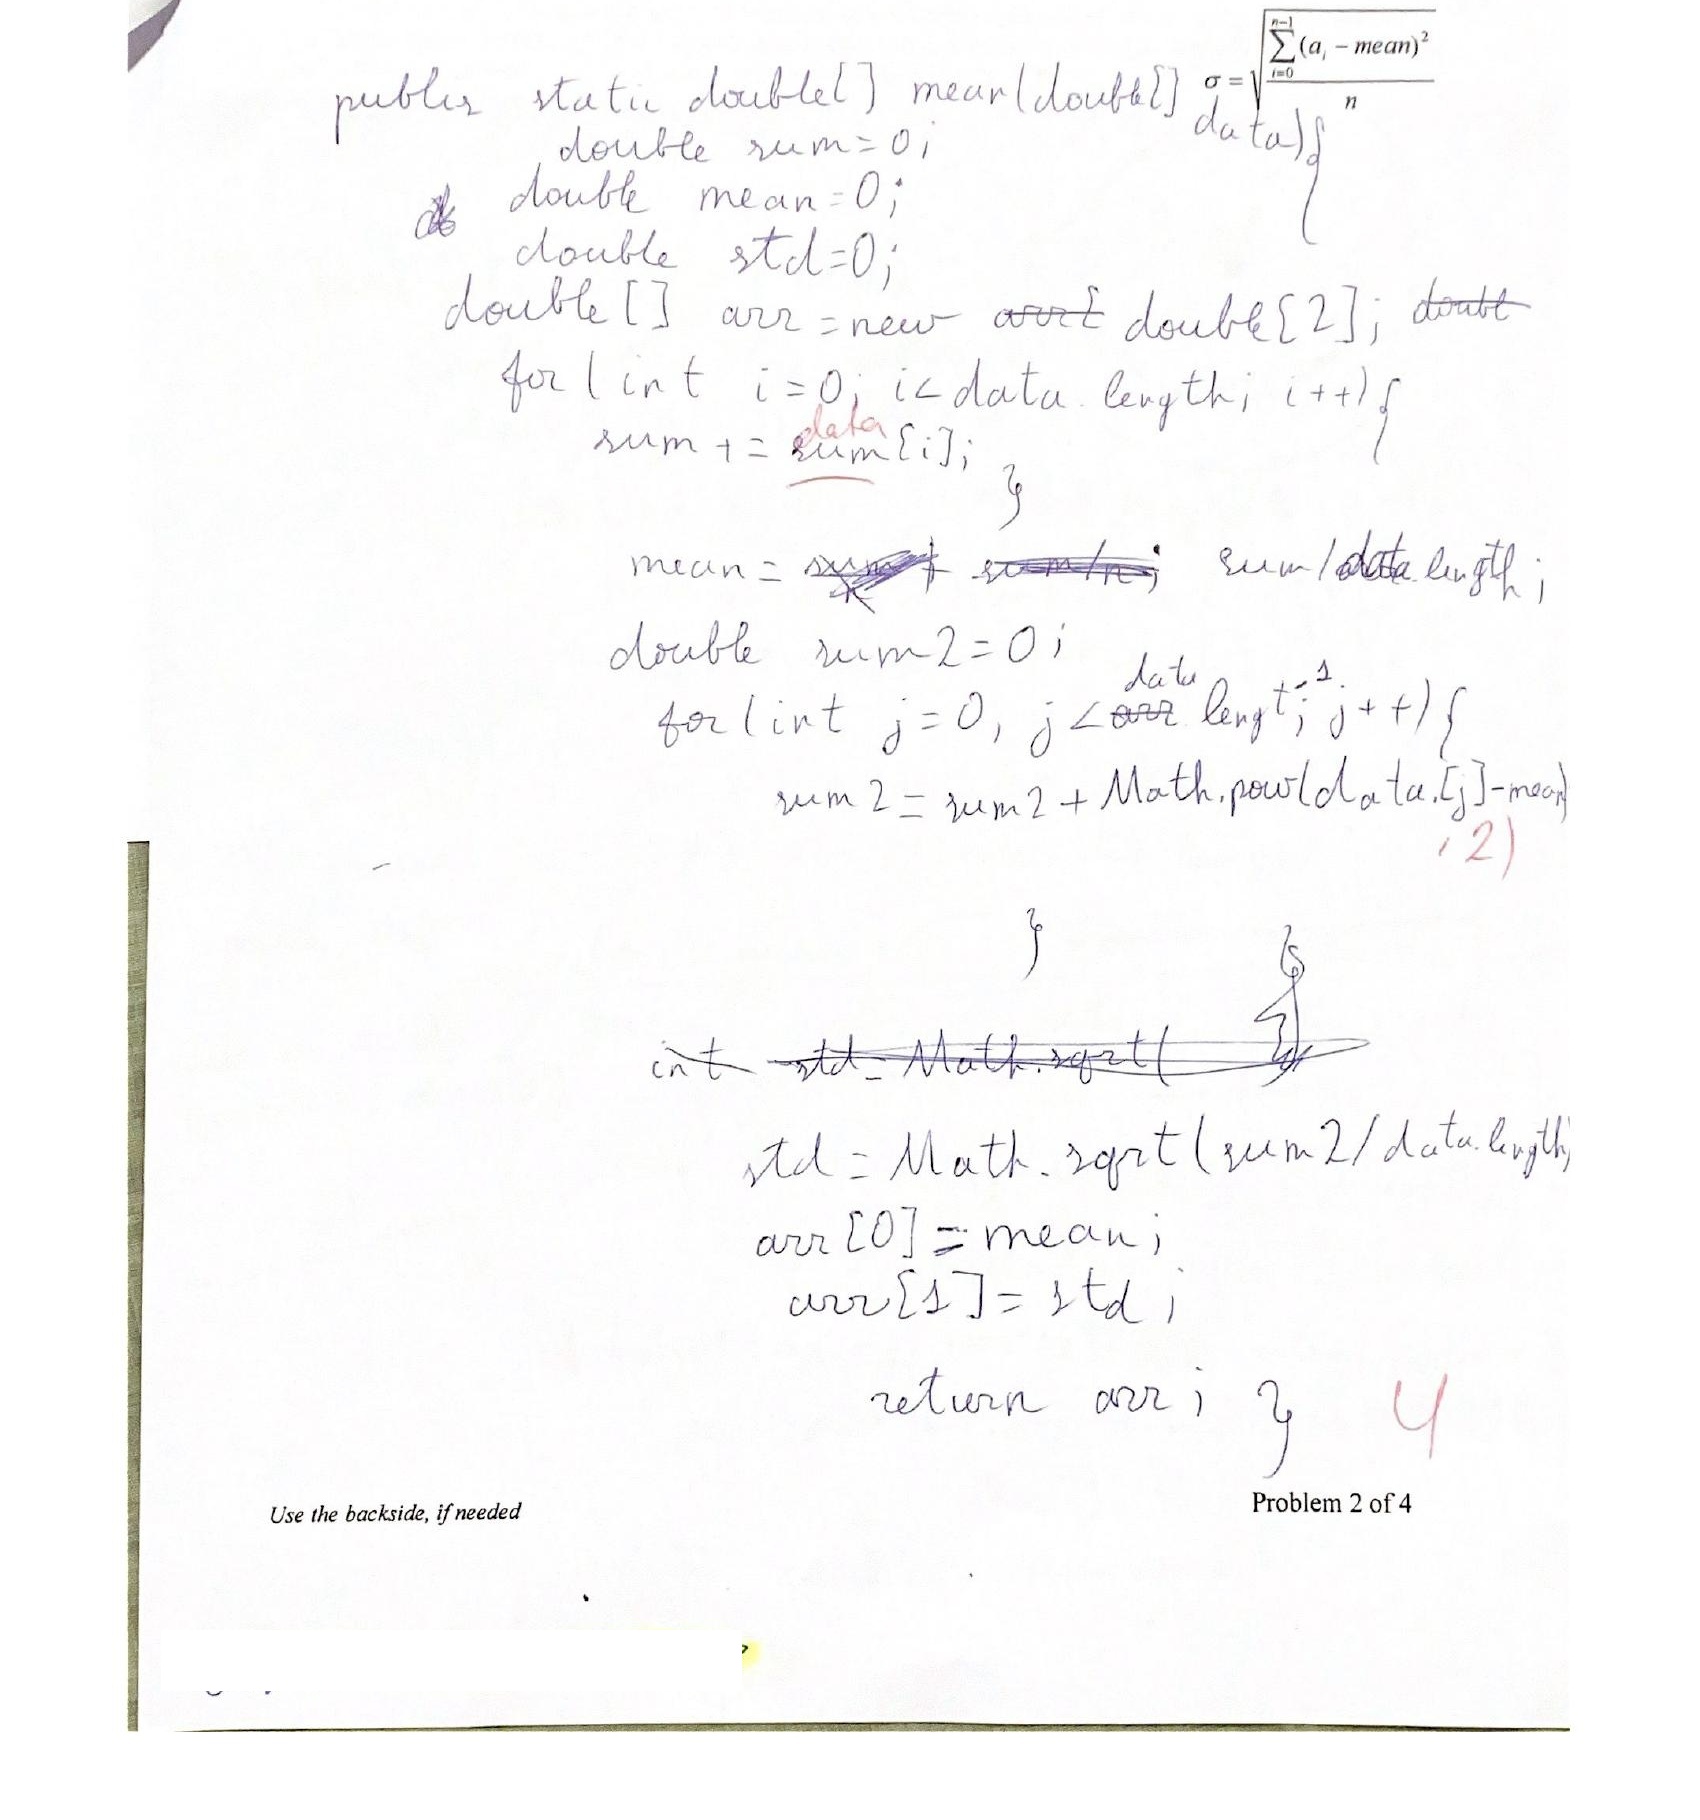 σ = √ n-1 ∑ i=0 (a_i − mean)² / n
public static double[] mean(double[] data){
double sum=0;
double mean=0;
double std=0;
double [] arr = new double[2];
for(int i=0; i<data.length; i++){
data
sum += sum[i];
}
mean = sum/data.length;
double sum2=0;
data
for(int j=0, j< arr lengt; -1 j++){
sum2 = sum2 + Math.pow(data.[j]-mean)
, 2)
}
int std= Math.sqrt(
std = Math.sqrt(sum2/data.length;
arr[0] = mean;
arr[1] = std;
return arr; } 4
Use the backside, if needed
Problem 2 of 4